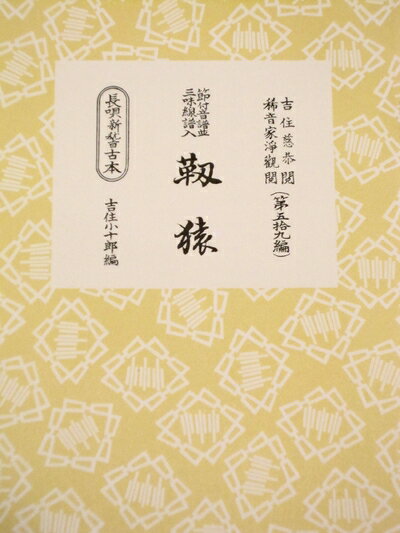 吉住慈恭閲
稀音家淨觀閲
(第五拾九編)
節付音譜並
三味線譜入
靱猿
長唄新稽古本
吉住小十郎編